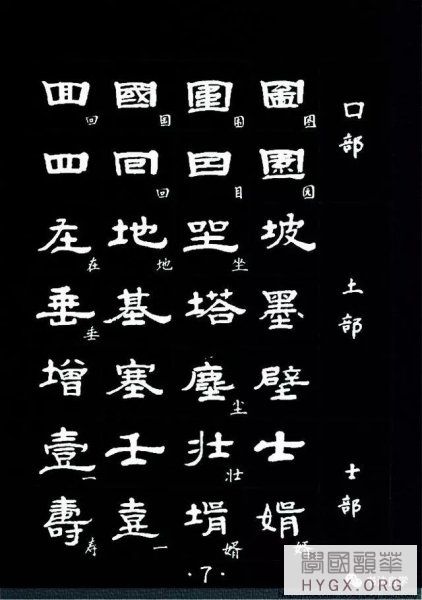 口部
圖图 圍围 國国 回回
園园 回回 四
土部
坡 坐坐 地地 在在
墨 塔 基 垂垂
壁 塵尘 塞 增
士部
士 壯壮 壬 壹一
婿婿 壻婿 壹一 壽寿
·7·
學國韻華
HYGX.ORG